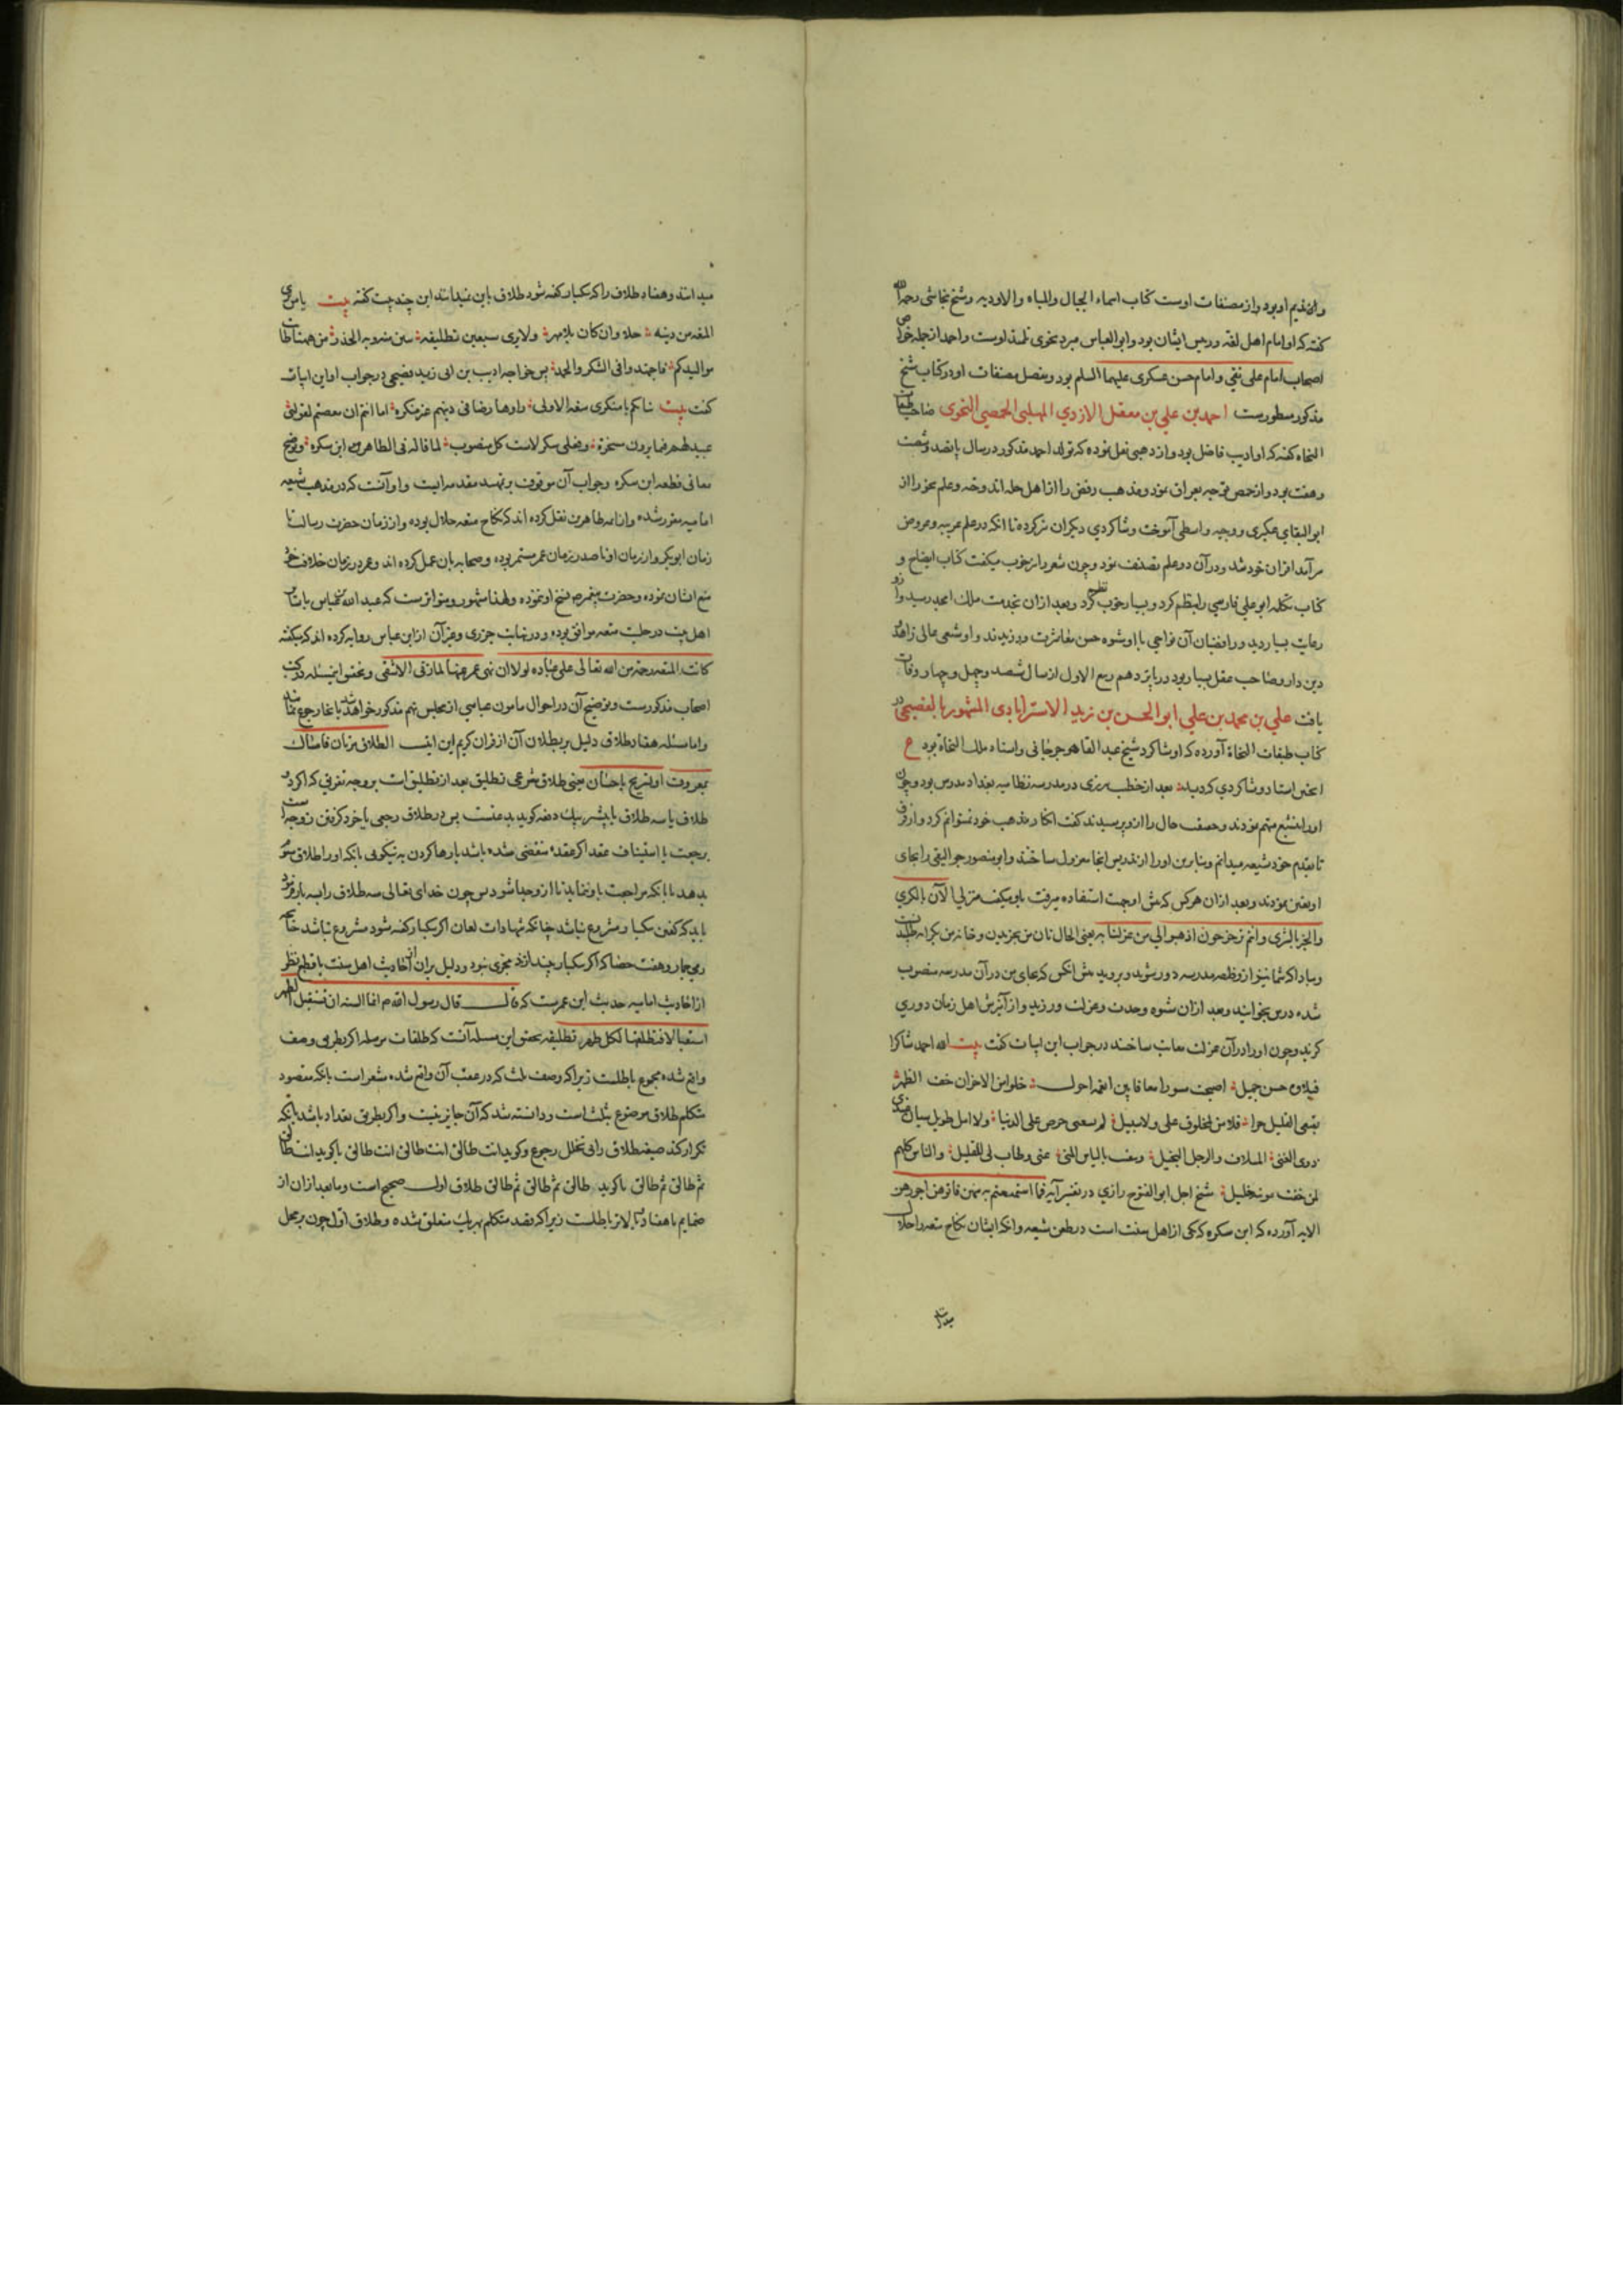 و از مصنفات اوست کتاب اسماء الجبال والمیاه والاودیه و شیخ نجاشی رحمه الله
گفته که او امام اهل لغه و رئیس ایشان بود و ابوالعباس مبرد نحوی تلمیذ اوست و احمد از جمله خواص
اصحاب امام علی نقی و امام حسن عسکری علیهما السلم بود و مفصل مصنفات او در کتاب شیخ
مذکور مسطورست احمد بن علي بن معقل الازدي المهلبی الحمصی النحوی صاحب طبقات
النحاه گفته که او ادیب فاضل بود و از ذهبی نقل نموده که تولد احمد مذکور در سال پانصد و شصت
و هفت بود و از حمص توجه بعراق نمود و مذهب رفض را از اهل حله اندوخته و علم نحو را از
ابوالبقاي عکبری و وجیه واسطی آموخت و شاکردي دیکران نیز کرده تا انکه در علم عربیه و عروض
سرآمد اقران خود شد و در آن دو علم تصنیف نمود و چون شعر را نیز خوب میکفت کتاب ایضاح و
کتاب تکله ابو علی فارسي را نظم کرد و بسیار خوب نظم کرد و بعد ازان بخدمت ملک امجد رسید و ازو
رعایت بسیار دید و رافضیان آن نواحي با او شیوه حسن معاشرت ورزیدند و او شخصی عالی زاهد
دین دار و صاحب عقل بسیار بود در پانزدهم ربیع الاول از سال ششصد و چهل و چهار وفات
یافت علي بن محمد بن علي ابو الحسن بن زید الاسترابادی المشهور بالفصیحی در
کتاب طبقات النحاة آورده که او شاکرد شیخ عبد القاهر جرجانی و استاد ملک النحاة بود ع
اینچنین استاد و شاکردي که دید بعد از خطیب تبریزی در مدرسه نظامیه بغداد مدرس بود و چون
او را بتشیع متهم نمودند و حقیقت حال را ازو پرسیدند کفت انکار مذهب خود نمیتوانم کرد و از فرق
تا بقدم خود شیعه میدانم و بنابرین او را از تدریس انجا معزول ساختند و ابو منصور جوالیقی را بجای
او تعین نمودند و بعد ازان هر کس که پیش او بجهت استفاده میرفت باو میکفت منزلي الآن بالکري
والخبز بالشری و انتم تزحزحون اذهبوا الي من عزلنا به یعنی الحال نان من بخریدن و خانه من بکرایه است
و مبادا که شما نیز از وظیفه مدرسه دور شوید بروید پیش انکس که بجای من در آن مدرسه منصوب
شده درس بخوانید و بعد ازان شیوه وحدت و عزلت ورزید و از آمیزش اهل زمان دوري
کزید و چون او را در آن عزلت معاتب ساختند در جواب این ابیات کفت بیت الله احمد شاکرا
فبلاؤه حسن جمیل اصبحت مسورا معافا بین انعمه احول خلوا من الاحزان خف الظهر
یقنعی القلیل حرا فلا من لمخلوق علی ولا سبیل لم یسعنی حرص علی الدنیا ولا امل طویل سیان عندی
ذوی الغنی المتلاف والرجل البخیل ونفیت بالیاس المنی عنی فطاب لی المقیل والناس کلهم
لمن خفت مونته خلیل شیخ اجل ابو الفتوح رازي در تفسیر آیه فما استمتعتم به منهن فاتوهن اجورهن
الایه آورده که ابن سکره که یکی از اهل سنت است در طعن شیعه و انکه ایشان نکاح متعه را حلال
میدانند
میدانند و هفتاد طلاق را که بیکبار کفته شود طلاق باین نمیدانند این چند بیت کفته بیت یا من یری
المتعه من دینه حلا وان کان بلا مهر ولا یری سبعین تطلیقه تبین منه ربه الخدر من ههنا طابت
موالیدکم فاجتهدوا فی الشکر والحمد پس خواجه ادیب بن ابی زید فصیحی در جواب او این ابیات
کفت بیت
معانی قطعه ابن سکره و جواب آن موقوف بر تمهید مقدمه ایست و او آنست که در مذهب شیعه
امامیه مقرر شده و از ائمه طاهرین نقل کرده اند که نکاح متعه حلال بوده و از زمان حضرت رسالت تا
زمان ابوبکر و از زمان او تا صدر زمان عمر مستمر بوده و صحابه بان عمل کرده اند و عمر در زمان خلافت خود
منع ایشان نموده و حضرت پیغمبر ص نسخ او نفرموده و لهذا مشهور و متواترست که عبد الله بن عباس با سایر
اهل بیت در حلیت متعه موافق بوده و در نهایت جزری و غیر آن از ابن عباس روایه کرده اند که میکفته
کانت المتعه رحمه من الله تعالی علی عباده لولا ان نهی عمر عنها لما زنی الا شقی و تحقیق این مسئله در کتب
اصحاب مذکورست و توضیح آن در احوال مامون عباسي از مجلس نهم مذکور خواهد شد باید انجا رجوع نمایند
و اما مسئله هفتاد طلاق دلیل بر بطلان آن از قران کریم این ایتست الطلاق مرتان فامساک
بمعروف او تسریح باحسان یعنی طلاق شرعی تطلیق بعد از تطلیق است بر وجه تفریق که اکر دو
طلاق یا سه طلاق یا بیشتر بیک دفعه کوید بدعتست پس در طلاق رجعی یا خود کرفتن زوجه است
برجعت یا استیناف عقد اکر عقده منقضی شده باشد یا رها کردن به نیکویی بانکه او را طلاق سوم
بدهد یا بانکه مراجعت باو ننماید تا ازو جدا شود پس چون خدای تعالی سه طلاق را بسه بار فرمود
باید که کفتن بیکبار مشروع نباشد چنانکه شهادات لعان اکر بیکبار کفته شود مشروع نباشد چنانچه
رمی جمار و هفت حصا که اکر بیکبار بیندازند مجزی نبود و دلیل بران از احادیث اهل سنت با قطع نظر
از احادیث امامیه حدیث ابن عمرست که قال قال رسول الله ص انما السنه ان تستقبل الطهر
استقبالا فتطلقها لکل طهر تطلیقه تحقیق این مسئله آنست که طلقات مرسله اکر بطریق وصف
واقع شده مجموع باطلست زیرا که وصف ثلث که در عقب آن واقع شده مشعر است بانکه مقصود
متکلم طلاق موضوع بثلث است و دانسته شد که آن جایز نیست و اکر بطریق تعداد باشد بانکه
تکرار کند صیغه طلاق را فی تخلل رجوع و کوید انت طالق انت طالق انت طالق یا کوید انت طالق
ثم طالق ثم طالق یا کوید طالق ثم طالق ثم طالق طلاق اول صحیح است و ما بعد ازان از
ضمایم تا هفتاد یا بالاتر باطلست زیرا که قصد متکلم بهر یک متعلق شده و طلاق اول چون بر محل